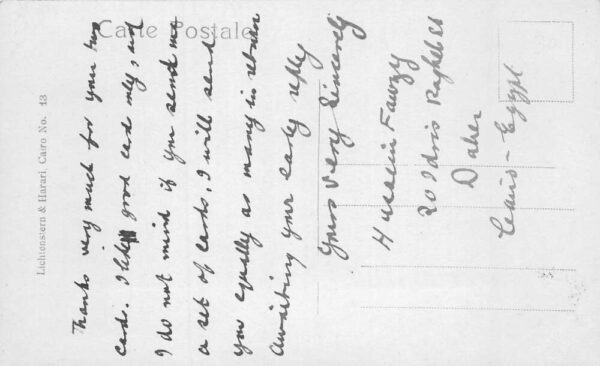 Carte Postale
Lichtenstern & Harari, Cairo No. 43
Thanks very much for your two
cards. I like good card only, and
I do not mind if you send me
a set of cards, I will send
you equally as many in return
Awaiting your early reply
Yours very Sincerely
Hussein Fawzy
20 Idris Ragheb St
Daher
Cairo - Egypt